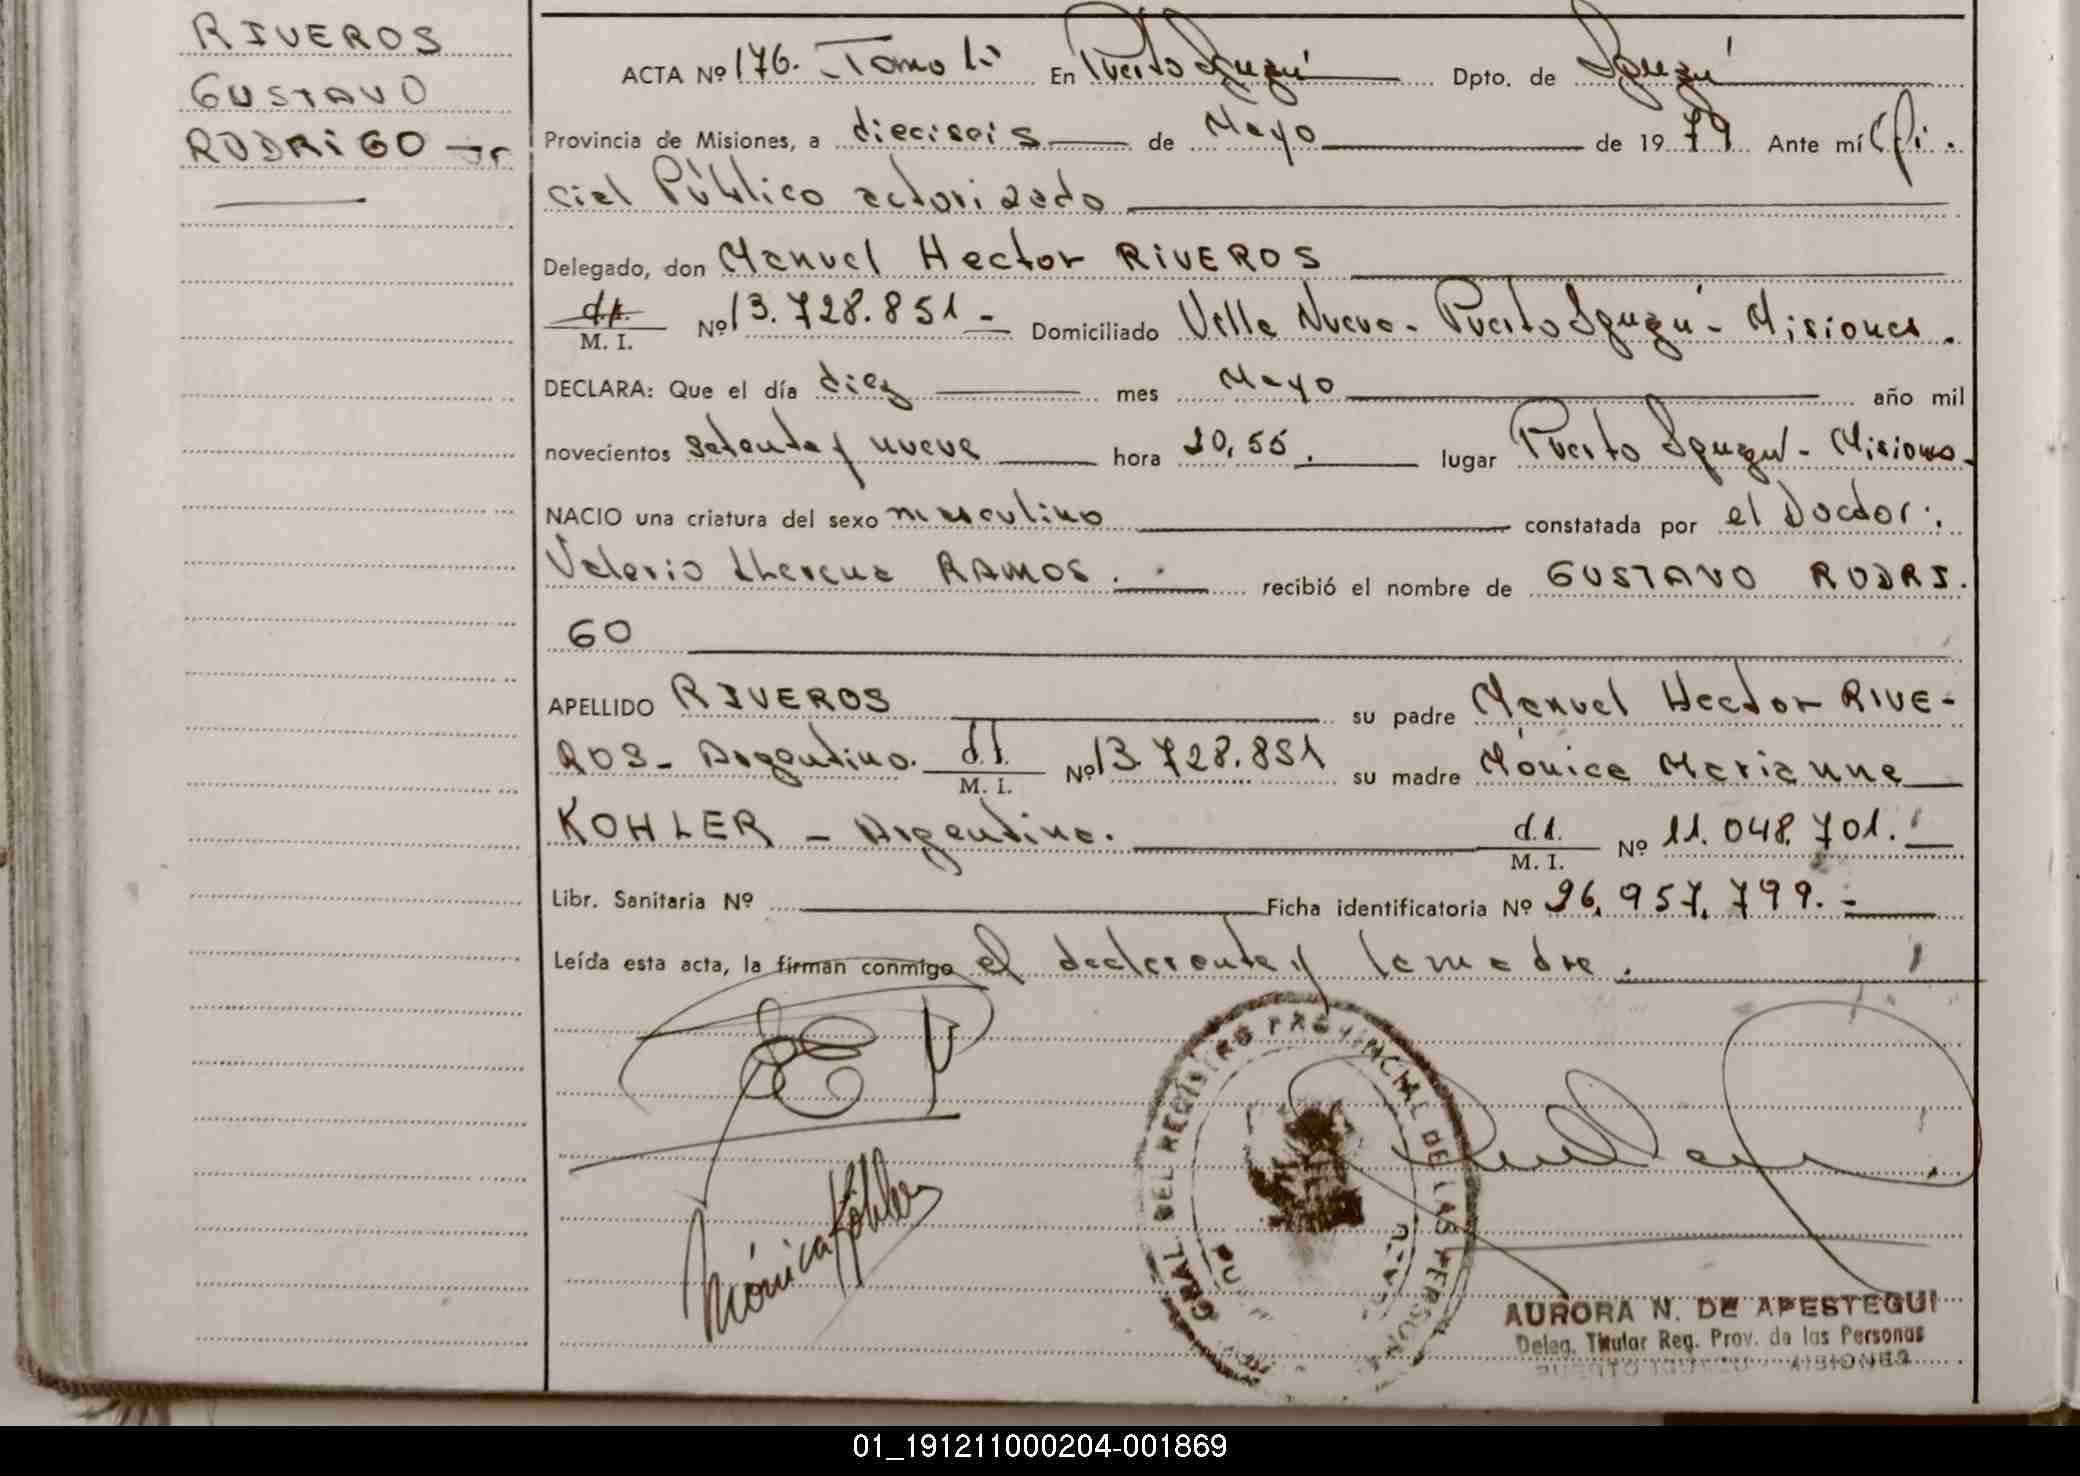 RIVEROS
GUSTAVO
RODRIGO
ACTA Nº 176. Tomo En Puerto Iguazú Dpto. de Iguazú
Provincia de Misiones, a dieciseis de Mayo de 1979 Ante mí Ofi.
cial Público autorizado
Delegado, don Manuel Hector RIVEROS
d.i. M. I. Nº 13.728.851 - Domiciliado Villa Nueva - Puerto Iguazú - Misiones.
DECLARA: Que el día diez mes Mayo año mil
novecientos setenta y nueve hora 20,55. lugar Puerto Iguazú - Misiones
NACIO una criatura del sexo masculino constatada por el Doctor:
Valerio Llerena RAMOS. recibió el nombre de GUSTAVO RODRI.
GO
APELLIDO RIVEROS su padre Manuel Hector RIVE-
ROS - Argentino. d.i. M. I. Nº 13.728.851 su madre Mónica Marianne
KOHLER - Argentina. d.i. M. I. Nº 11.048.701.
Libr. Sanitaria Nº Ficha identificatoria Nº 26.957.799.-
Leída esta acta, la firman conmigo el declarante y la madre.
GRAL. DEL REGISTRO PROVINCIAL DE LAS PERSONAS
Mónica Köhler
AURORA N. DE APESTEGUI
Deleg. Titular Reg. Prov. de las Personas
PUERTO IGUAZU MISIONES
01_191211000204-001869